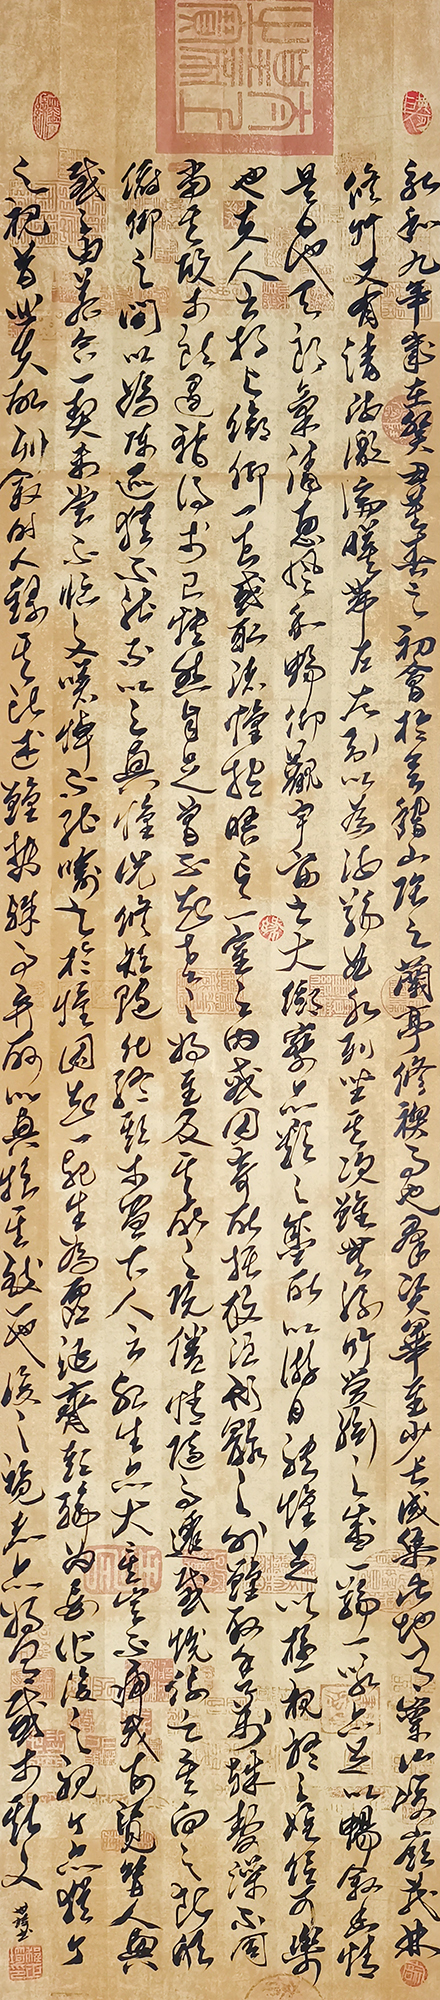 永和九年歲在癸丑暮春之初會於會稽山陰之蘭亭修禊事也群賢畢至少長咸集此地有崇山峻嶺茂林
修竹又有清流激湍映帶左右引以為流觴曲水列坐其次雖無絲竹管絃之盛一觴一詠亦足以暢敘幽情
是日也天朗氣清惠風和暢仰觀宇宙之大俯察品類之盛所以遊目騁懷足以極視聽之娛信可樂
也夫人之相與俯仰一世或取諸懷抱晤言一室之內或因寄所託放浪形骸之外雖取舍萬殊靜躁不同
當其欣於所遇暫得於己快然自足曾不知老之將至及其所之既倦情隨事遷感慨係之矣向之所欣
俯仰之間以為陳迹猶不能不以之興懷況修短隨化終期於盡古人云死生亦大矣豈不痛哉每覽昔人興
感之由若合一契未嘗不臨文嗟悼不能喻之於懷固知一死生為虛誕齊彭殤為妄作後之視今亦猶今
之視昔悲夫故列敘時人錄其所述雖世殊事異所以興懷其致一也後之覽者亦將有感於斯文